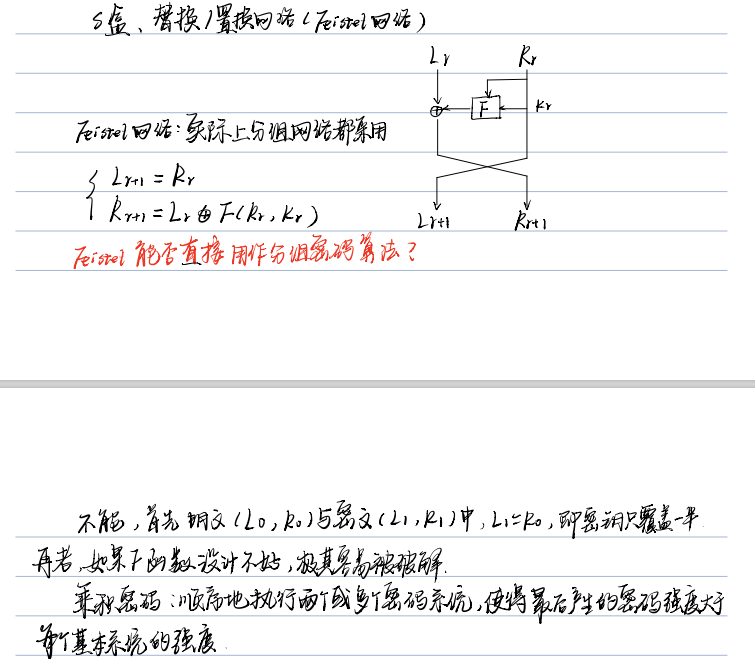 S盒、替换/置换网络(Feistel网络)
Lr Rr
F Kr
Feistel网络:实际上分组网络都采用
Lr+1 = Rr
Rr+1 = Lr ⊕ F(Rr, Kr)
Lr+1 Rr+1
Feistel 能否直接用作分组密码算法?
不能,首先明文(L0, R0)与密文(L1, R1)中, L1=R0, 即密钥只覆盖一半
再者,如果F函数设计不好,极其容易被破解.
乘积密码:顺序地执行两个或多个密码系统,使得最后产生的密码强度大于
每个基本系统的强度.